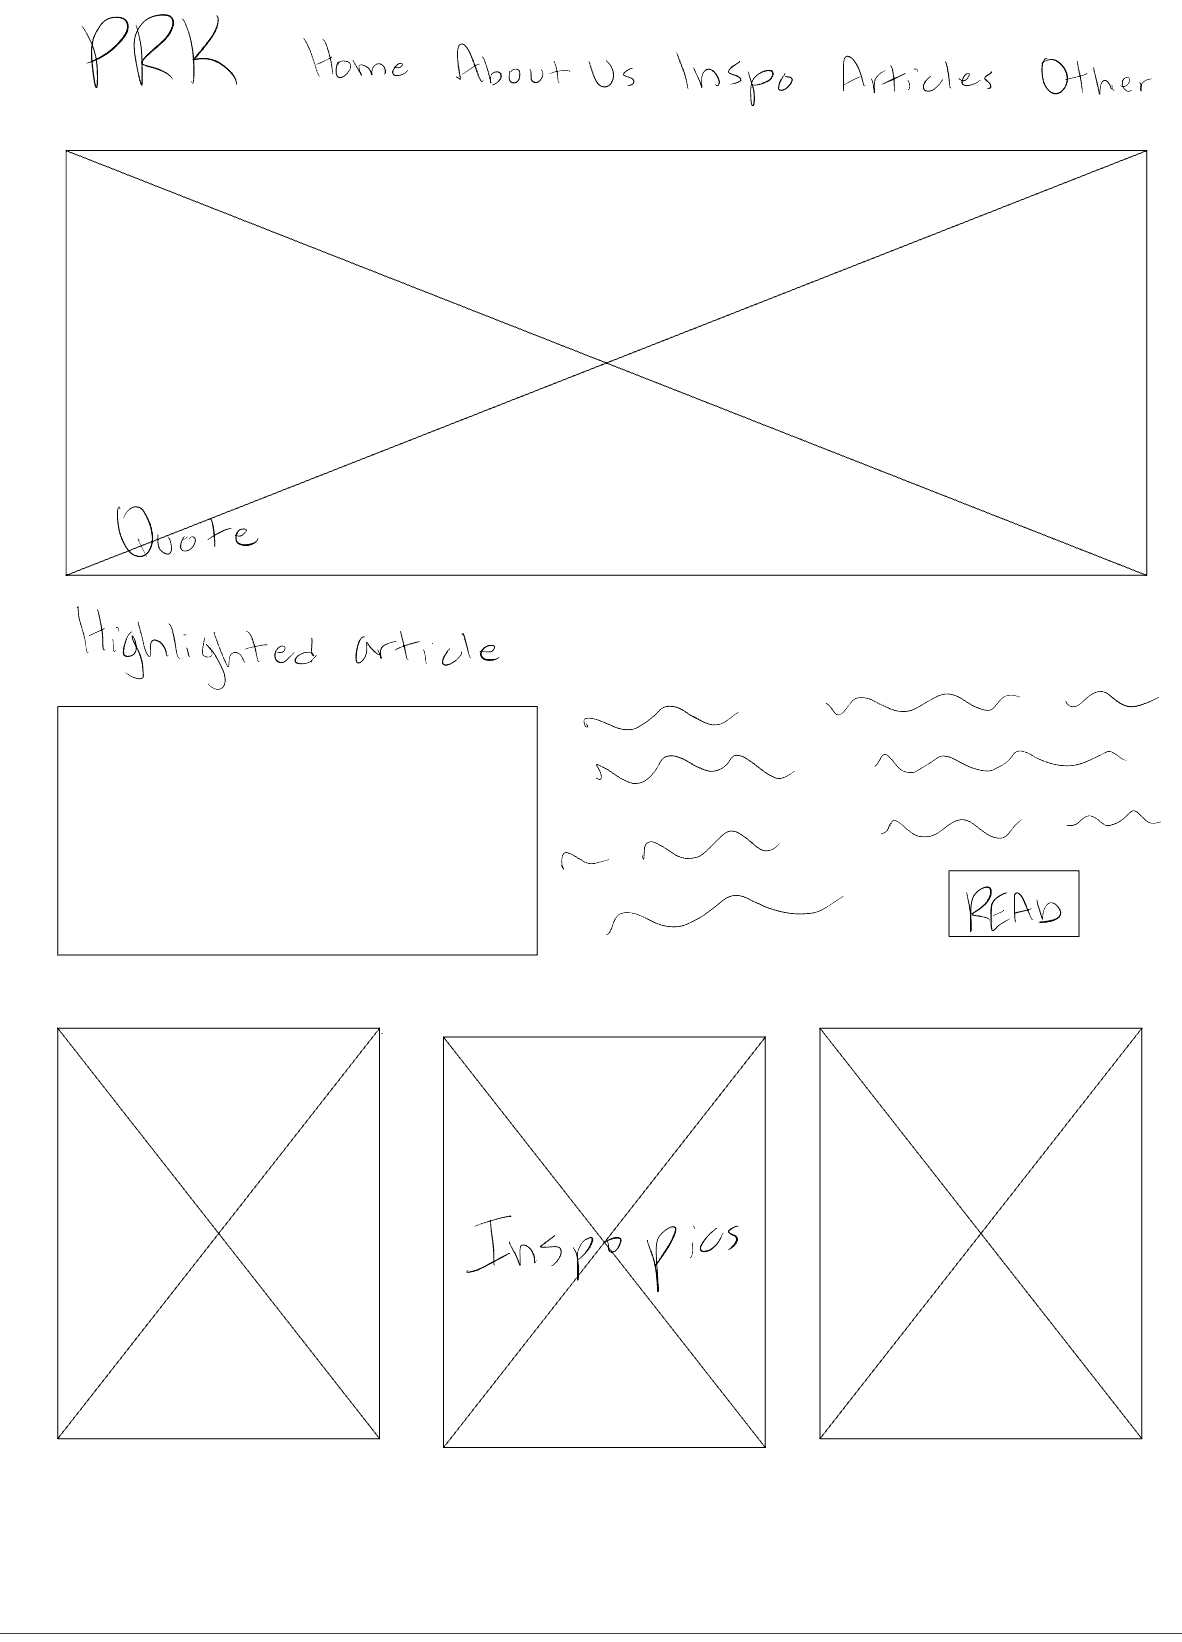 PRK Home About Us Inspo Articles Other
Quote
Highlighted article
READ
Inspo pics